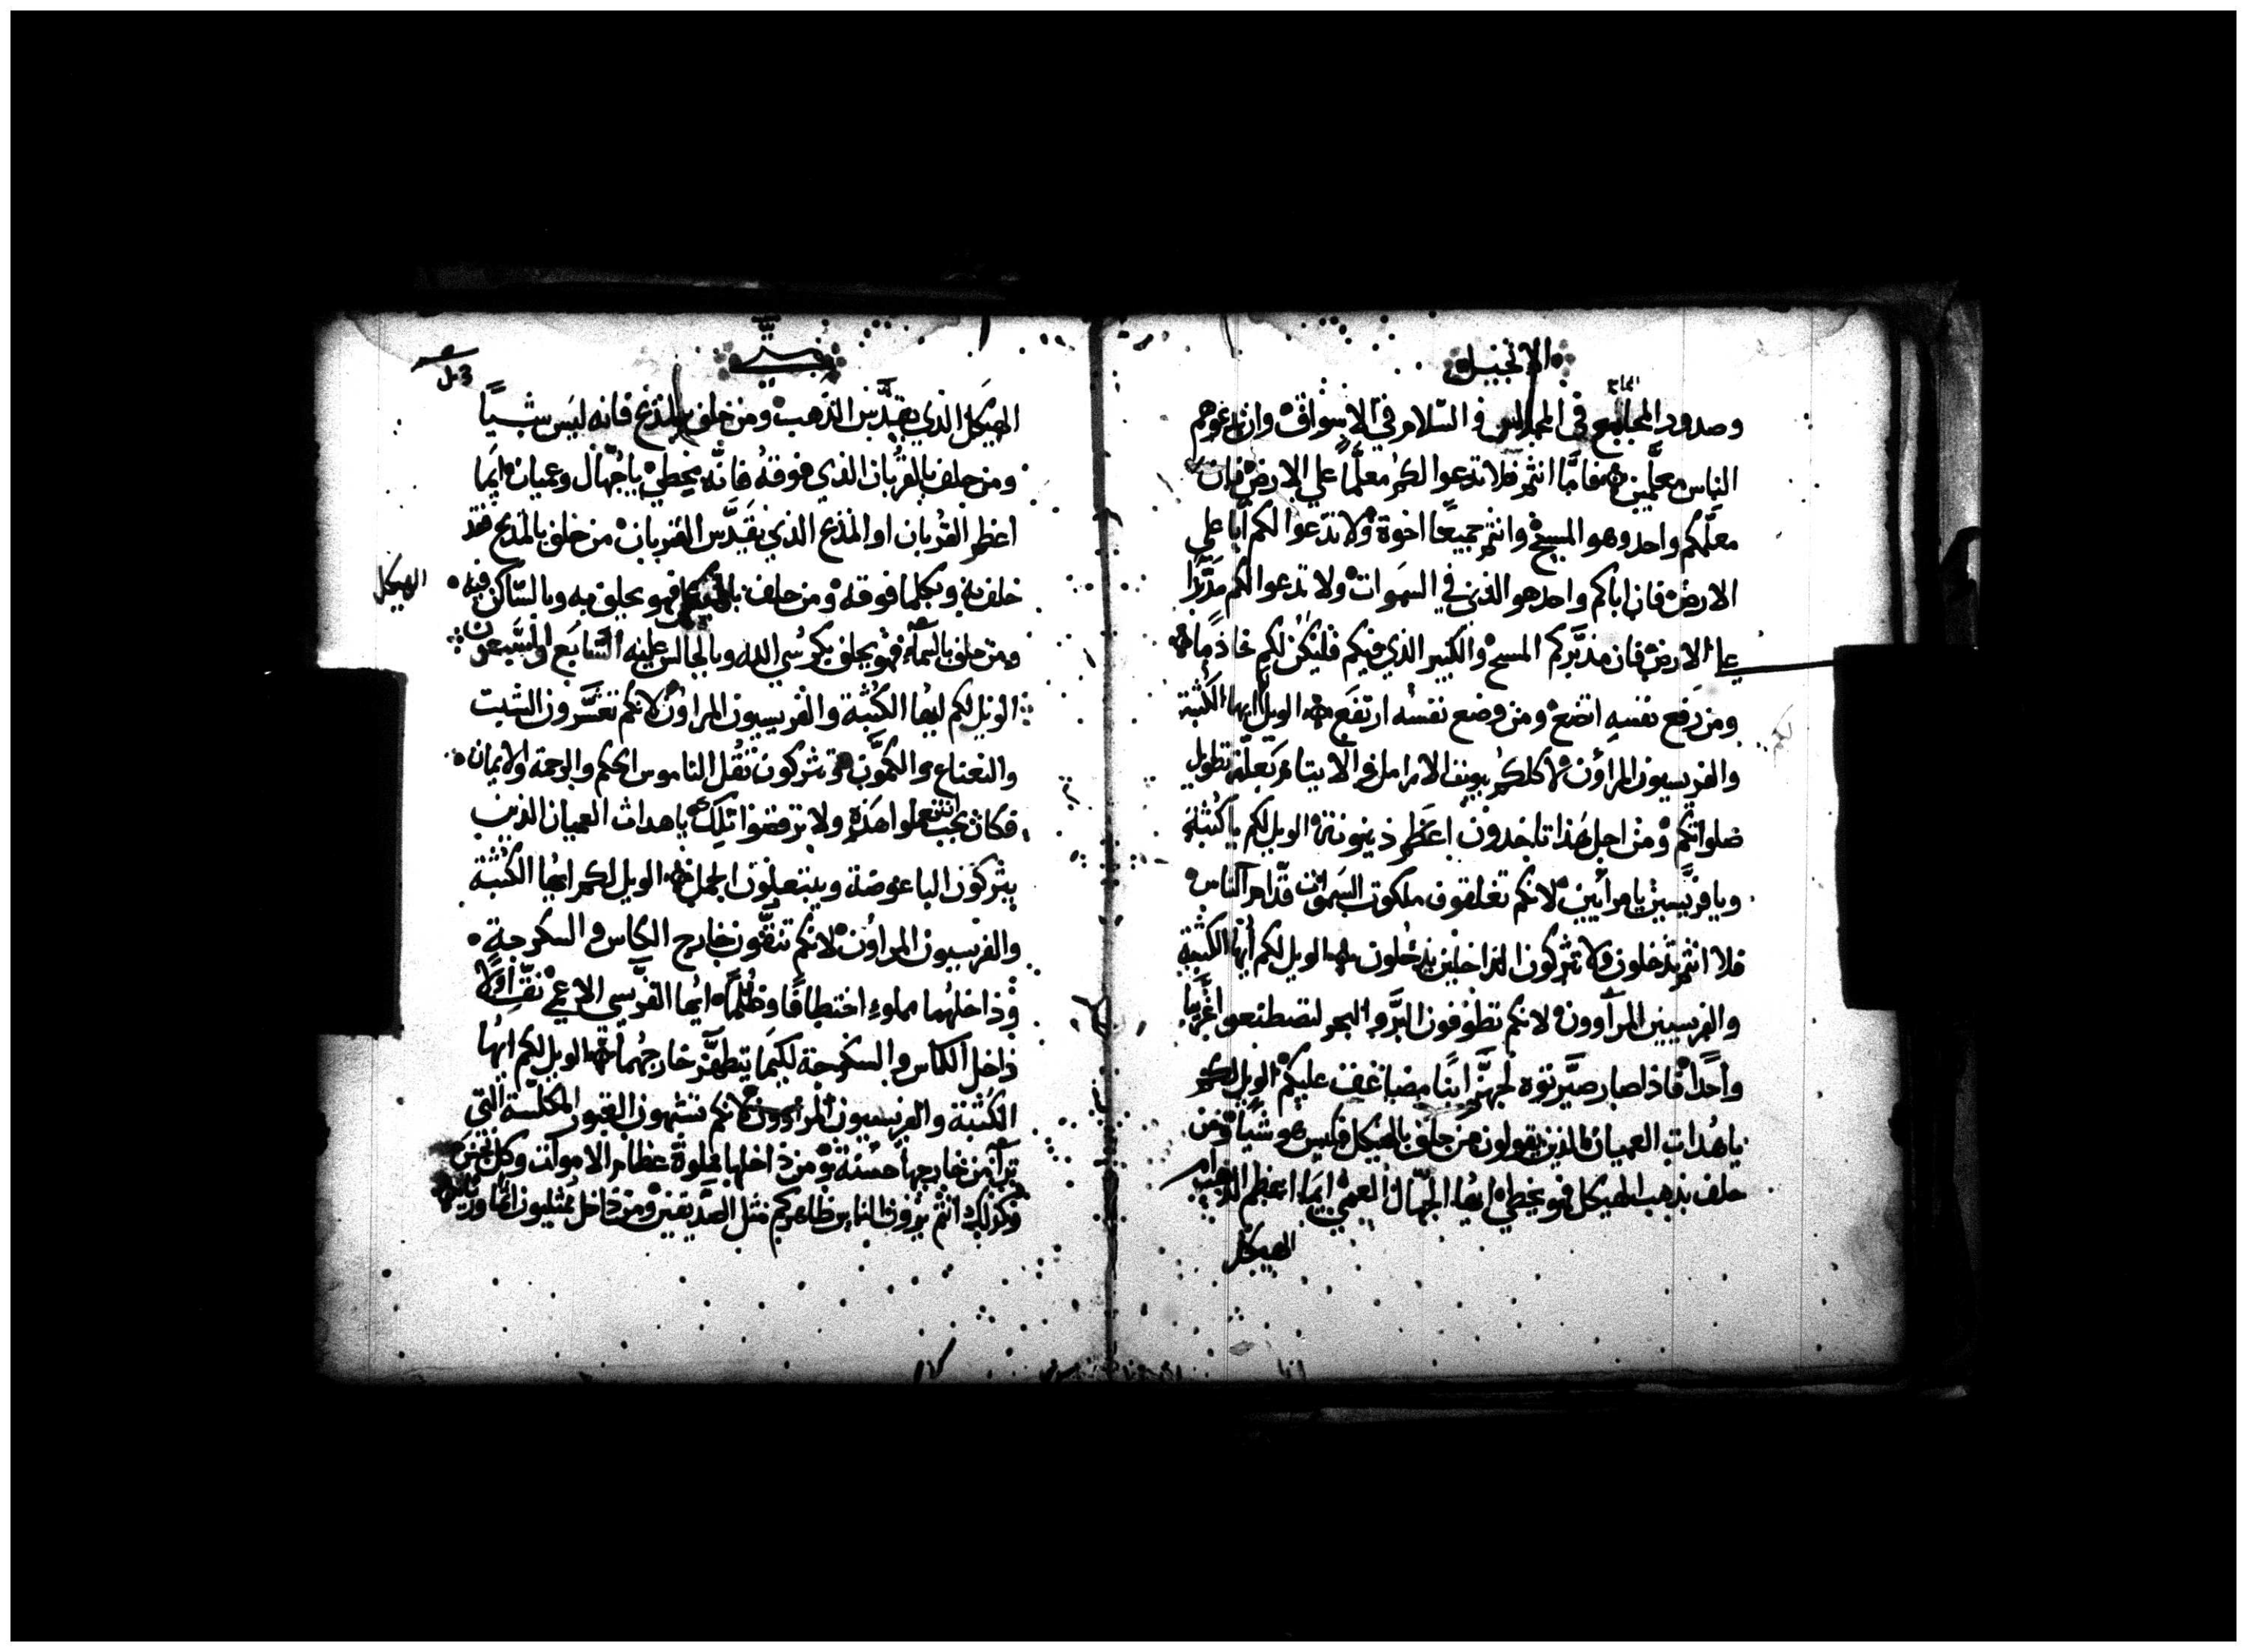 الانجيل
وصدور المجالس في المجامع والسلام في الاسواق وان تدعوهم
الناس معلمين فاما انتم فلا تدعوا لكم معلما على الارض فان
معلمكم واحد وهو المسيح وانتم جميعا اخوة ولا تدعوا لكم ابا على
الارض فان اباكم واحد هو الذي في السموات ولا تدعوا لكم مدبرا
على الارض فان مدبركم المسيح والكبير الذي فيكم فليكن لكم خادما
ومن رفع نفسه اتضع ومن وضع نفسه ارتفع الويل ايها الكتبة
والفريسيون المراؤن لاكلكم بيوت الارامل والايتام بعلة تطويل
صلواتكم ومن اجل هذا تاخدون اعظم دينونة الويل لكم يا كتبة
ويا فريسيين يا مرائيين لانكم تغلقون ملكوت السموات قدام الناس
فلا انتم تدخلون ولا تتركون الداخلين يدخلون الويل لكم ايها الكتبة
والفريسيين المرآوون لانكم تطوفون البر والبحر لتصطنعوا غريبا
واحدا فاذا صار صيرتوه لجهنم ابنا مضاعف عليكم الويل لكم
يا هدات العميان الذين يقولون من حلف بالهيكل فليس هو شيا ومن
حلف بذهب الهيكل فهو يخطي ايها الجهال العمي ايما اعظم الذهب ام
الهيكل
متى
الهيكل الذي يقدس الذهب ومن حلف بالمذبح فانه ليس شيا
ومن حلف بالقربان الذي فوقه فانه يخطي يا جهال وعميان ايما
اعظم القربان او المذبح الذي يقدس القربان من حلف بالمذبح فقد
حلف به وبكلما فوقه ومن حلف بالهيكل فهو يحلف به وبالساكن فيه
الهيكل
ومن حلف بالسماء فهو يحلف بكرسي الله وبالجالس عليه السابع والسبعون
الويل لكم ايها الكتبة والفريسيون المراون لانكم تعشرون الشبت
والنعناع والكمون وتتركون ثقل الناموس الحكم والرحمة والايمان
فكان يجب ان تعملوا هذه ولا ترفضوا تلك يا هدات العميان الذين
يتركون الباعوضة ويبتعلون الجمل الويل لكم ايها الكتبة
والفريسيون المراؤن لانكم تنقون خارج الكاس والسكرجة
وداخلهما مملوء اختطافا وظلما ايها الفريسي الاعمى نق اولا
داخل الكاس والسكرجة لكيما يتطهر خارجهما الويل لكم ايها
الكتبة والفريسيون المراؤون لانكم تشبهون القبور المكلسة التي
ترا من خارجها حسنة ومن داخلها مملوة عظام الاموات وكل نجس
وكذلك انتم ترون الناس ظاهركم مثل الصديقين ومن داخل ممتليون اثما ورياء